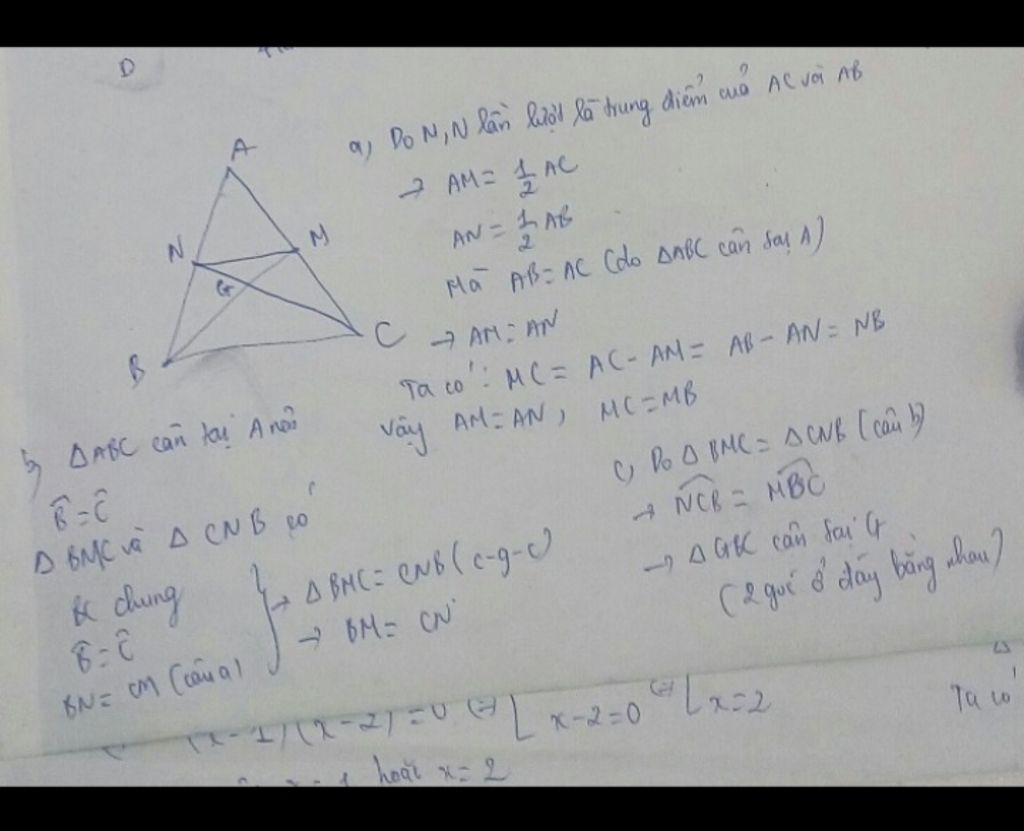 D
A
N
M
G
B
C
a, Do N, N lần lượt là trung điểm của AC và AB
→ AM = 1/2 AC
AN = 1/2 AB
Mà AB = AC (do ΔABC cân tại A)
→ AM = AN
Ta có: MC = AC - AM = AB - AN = NB
Vậy AM = AN, MC = MB
b, ΔABC cân tại A nên
B̂ = Ĉ
Δ BMC và Δ CNB có
BC chung
B̂ = Ĉ
BN = CM (câu a)
→ Δ BMC = CNB (c-g-c)
→ BM = CN
c, Do Δ BMC = Δ CNB (câu b)
→ N̂CB = M̂BC
→ Δ GBC cân tại G
(2 góc ở đáy bằng nhau)
(x-1)(x-2) = 0 ⇔ [ x-2=0 ⇔ [ x=2
Ta có
hoặc x = 2